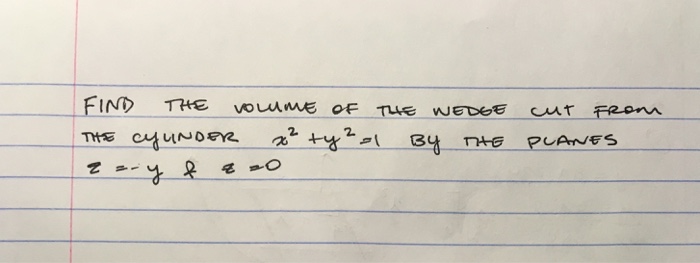 FIND THE VOLUME OF THE WEDGE CUT FROM
THE CYLINDER x² + y² = 1 BY THE PLANES
z = -y & z = 0